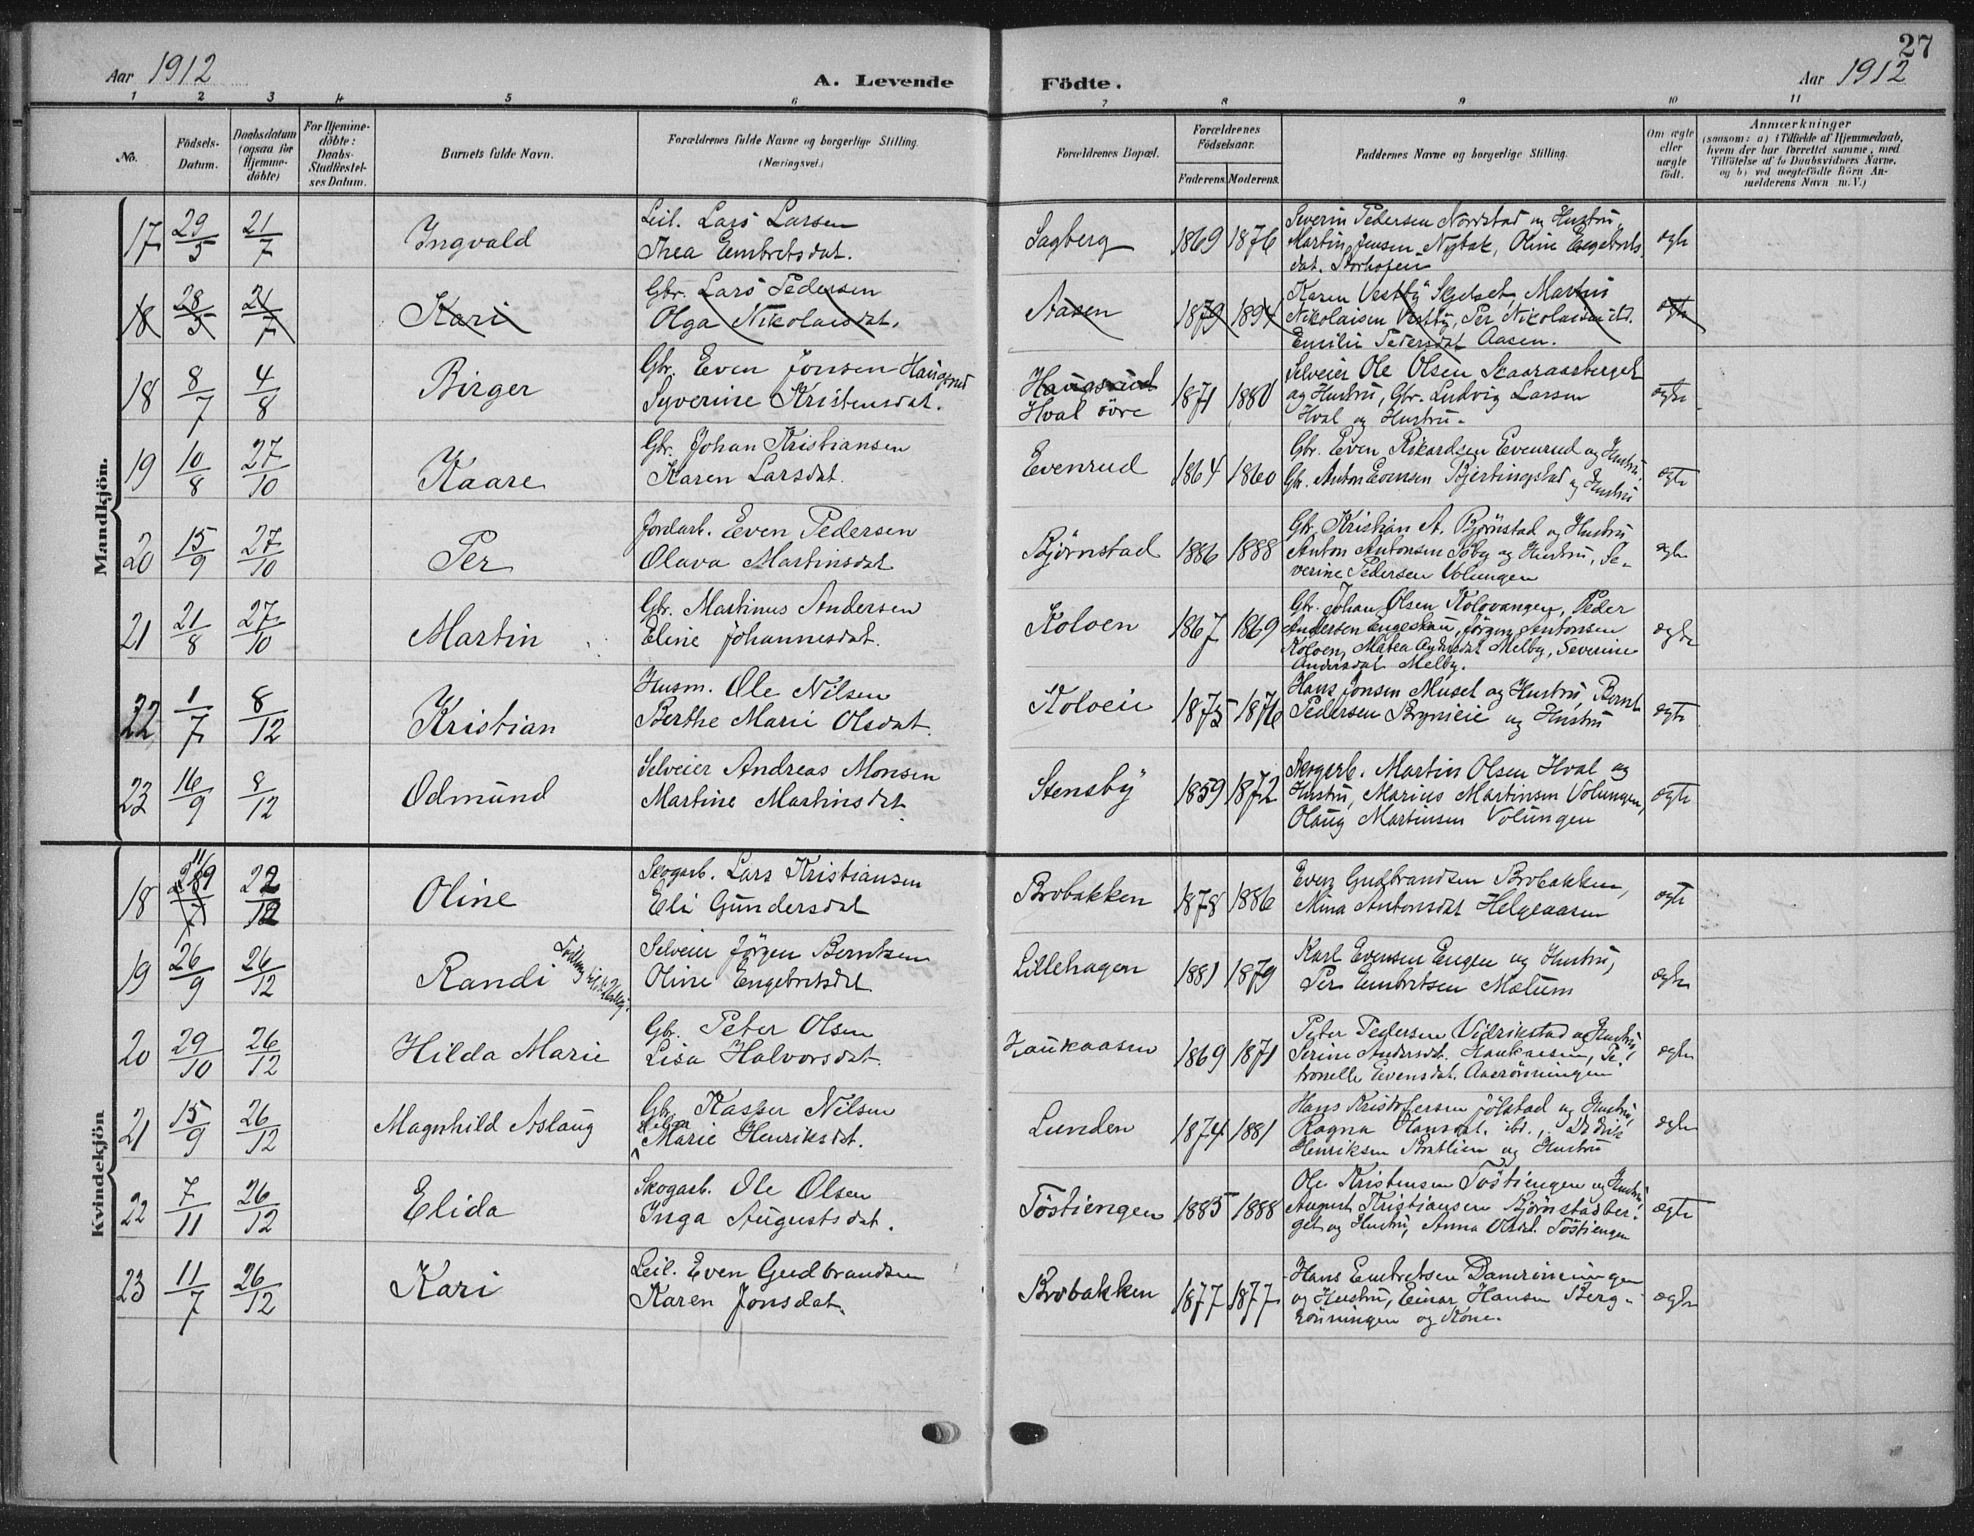 Aar 1912
A. Levende
Födte.
27
Aar 1912
1 2 3 4 5 6 7 8 9 10 11
No.
Födsels-
Datum.
Daabsdatum
(ogsaa for
Hjemme-
döbte)
For Hjemme-
döbte:
Daabs-
Stadfæstel-
ses Datum.
Barnets fulde Navn.
Forældrenes fulde Navne og borgerlige Stilling.
(Næringsvei.)
Forældrenes Bopæl.
Forældrenes
Födselsaar.
Faderens. Moderens.
Faddernes Navne og borgerlige Stilling.
Om ægte
eller
uægte
födt.
Anmærkninger
(saasom: a) i Tilfælde af Hjemmedaab,
hvem der har forrettet samme, med
Tilföielse af to Daabsvidners Navne,
og b) ved uægtefödte Börn An-
melderens Navn m. V.)
Mandkjön.
17 29/5 21/7 Ingvald
Leil. Lars Larsen
Thea Embretsdat.
Sagberg 1869 1876
Severin Pedersen Nordstad og Hustru,
Martin Jensen Nybak, Oline Engebrets
dat. Storhofen
ægte
18 28/5 21/7 Kari
Gbr. Lars Pedersen
Olga Nikolaisdat.
Aasen 1879 1894
Karen Vestby Skjelset, Marius
Nikolaisen Vestby, Per Nikolaisen ibd.
Emilie Pedersdat Aasen.
ægte
18 8/7 4/8 Birger
Gbr. Even Jonsen Haugsrud
Syverine Kristensdat.
Haugsrud
Hval övre 1871 1880
Selveier Ole Olsen Skaaraasberget
og Hustru, Gbr. Ludvig Larsen
Hval og Hustru.
ægte
19 10/8 27/10 Kaare
Gbr. Johan Kristiansen
Karen Larsdat.
Evenrud 1864 1860
Gbr. Even Rikardsen Evenrud og Hustru
Gbr. Anton Evensen Bjertingstad og Hustru
ægte
20 15/9 27/10 Per
Jordarb. Even Pedersen
Olava Martinsdat
Björnstad 1886 1888
Gbr. Kristian A. Björnstad og Hustru
Anton Antonsen Söby og Hustru, Se-
verine Pedersen Volungen
ægte
21 21/8 27/10 Martin
Gbr. Martinus Andersen
Eline Johannesdat.
Koloen 1867 1869
Gbr. Johan Olsen Kolovangen, Peder
Andersen Engeskau, Jörgen Antonsen
Koloen, Matea Andersdat Melby, Severine
Andersdat Melby.
ægte
22 1/7 8/12 Kristian
Husm. Ole Nilsen
Berthe Marie Olsdat.
Koloeie 1875 1876
Hans Jonsen Musel og Hustru, Bernt
Pedersen Brynieie og Hustru
ægte
23 16/9 8/12 Odmund
Selveier Andreas Monsen
Martine Martinsdat.
Stensby 1859 1872
Skogarb. Martin Olsen Hval og
Hustru, Marius Martinsen Volungen,
Olaug Martinsen Volungen
ægte
Kvindekjön
18 11/9 22/12 Oline
Skogarb. Lars Kristiansen
Eli Gundersdat
Brobakken 1878 1886
Even Gudbrandsen Brobakken,
Mina Antonsdat Helgeaasen
ægte
19 26/9 26/12 Randi
Selveier Jörgen Berntsen
Oline Engebretsdat
Lillehagen 1881 1879
Karl Evensen Engen og Hustru,
Per Embretsen Mælum
ægte
20 29/10 26/12 Hilda Marie
Gbr. Peter Olsen
Lisa Halvorsdat.
Haukaasen 1869 1871
Peter Pedersen Vidrikstad og Hustru,
Serine Andersdat. Haukaasen, Pe-
tronelle Evensdat. Aasrönningen
ægte
21 15/9 26/12 Magnhild Aslaug
Gbr. Kasper Nilsen
Helga
Marie Henriksdat.
Lunden 1874 1881
Hans Kristofersen Jölstad og Hustru,
Ragna Hansdat. ibd., Didrik
Henriksen Brattlien og Hustru
ægte
22 7/11 26/12 Elida
Skogarb. Ole Olsen
Inga Augustsdat.
Töstiengen 1885 1888
Ole Kristensen Töstiengen og Hustru,
August Kristiansen Björnstadber-
get og Hustru, Anna Olsd. Töstiengen
ægte
23 11/7 26/12 Kari
Leil. Even Gudbrandsen
Karen Jonsdat.
Brobakken 1877 1877
Hans Embretsen Damrönningen
og Hustru, Einar Hansen Berg-
rönningen og Kone.
ægte